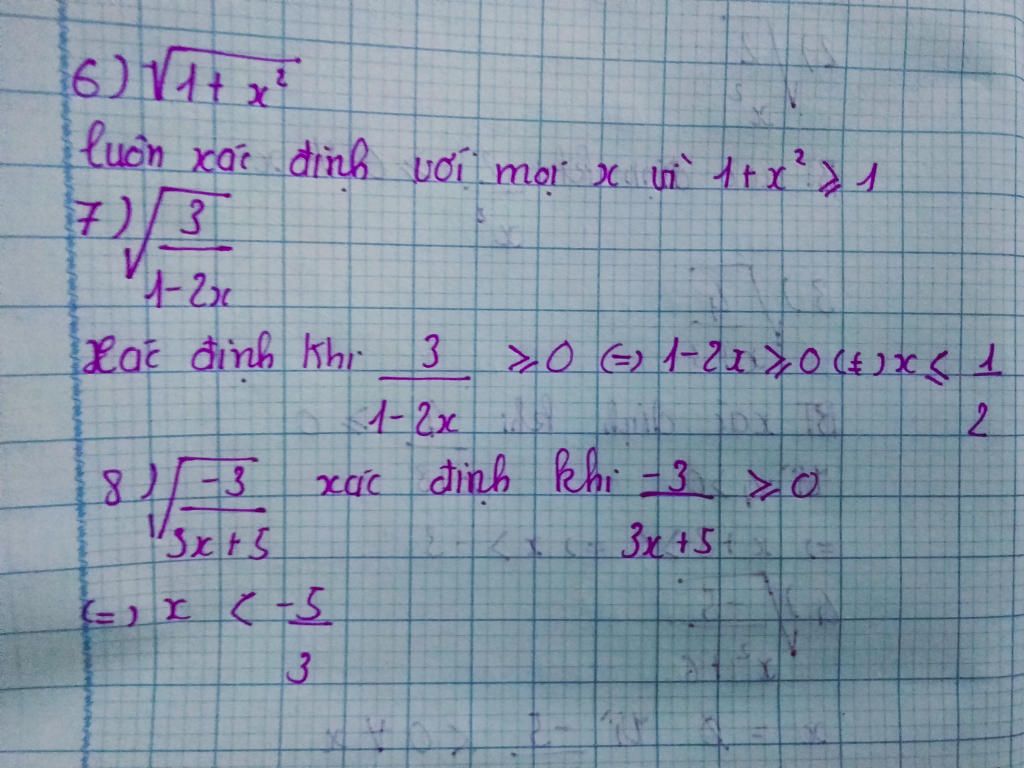 6) √(1 + x²)
luôn xác định với mọi x vì 1 + x² ⩾ 1
7) √(3/(1 - 2x))
xác định khi 3/(1 - 2x) ⩾ 0 (=) 1 - 2x ⩾ 0 (=) x ⩽ 1/2
8) √(-3/(3x + 5)) xác định khi -3/(3x + 5) ⩾ 0
(=) x < -5/3